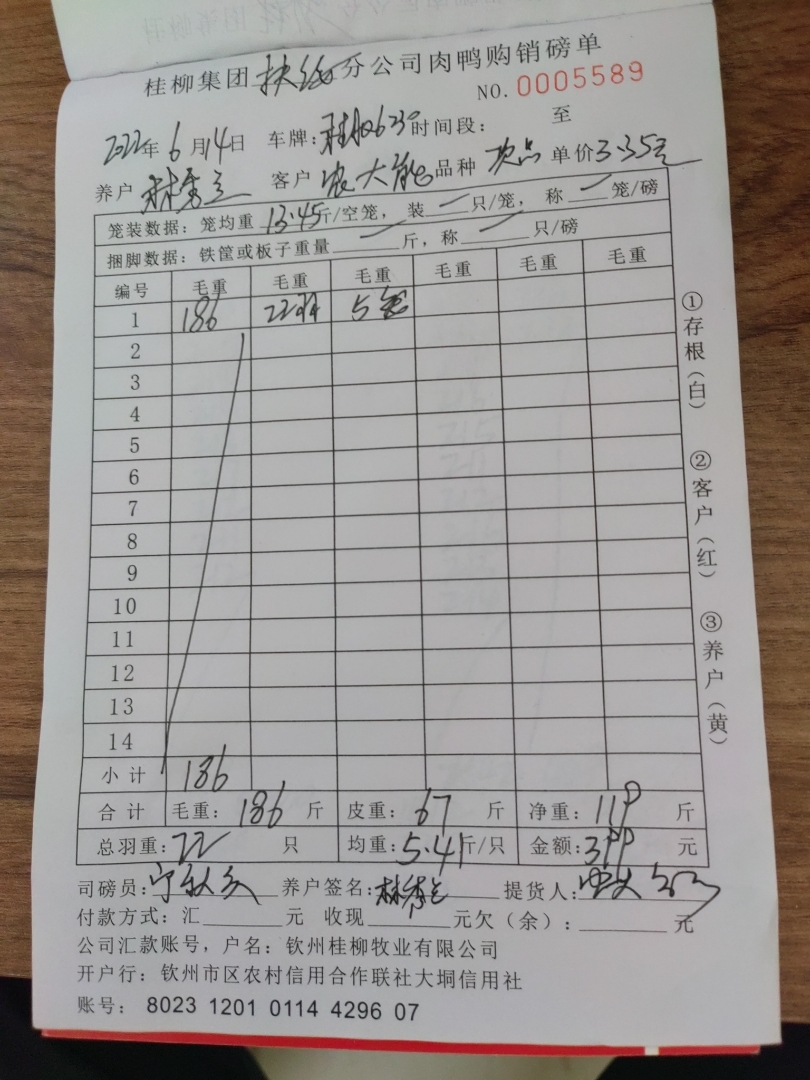 桂柳集团扶绥分公司肉鸭购销磅单
NO. 0005589
2022年6月14日 车牌: 时间段: 至
养户 林秀兰 客户 农大 品种 次品 单价3.35元
笼装数据: 笼均重 13.45斤/空笼, 装 只/笼, 称 笼/磅
捆脚数据: 铁筐或板子重量 斤, 称 只/磅
编号 毛重 毛重 毛重 毛重 毛重 毛重
1 186 22羽 5笼
2
3
4
5
6
7
8
9
10
11
12
13
14
小计 186
合计 毛重: 186 斤 皮重: 67 斤 净重: 119 斤
总羽重: 22 只 均重: 5.41斤/只 金额: 399 元
司磅员: 养户签名: 林秀兰 提货人:
付款方式: 汇 元 收现 元欠(余): 元
公司汇款账号, 户名: 钦州桂柳牧业有限公司
开户行: 钦州市区农村信用合作联社大垌信用社
账号: 8023 1201 0114 4296 07
①存根(白)
②客户(红)
③养户(黄)